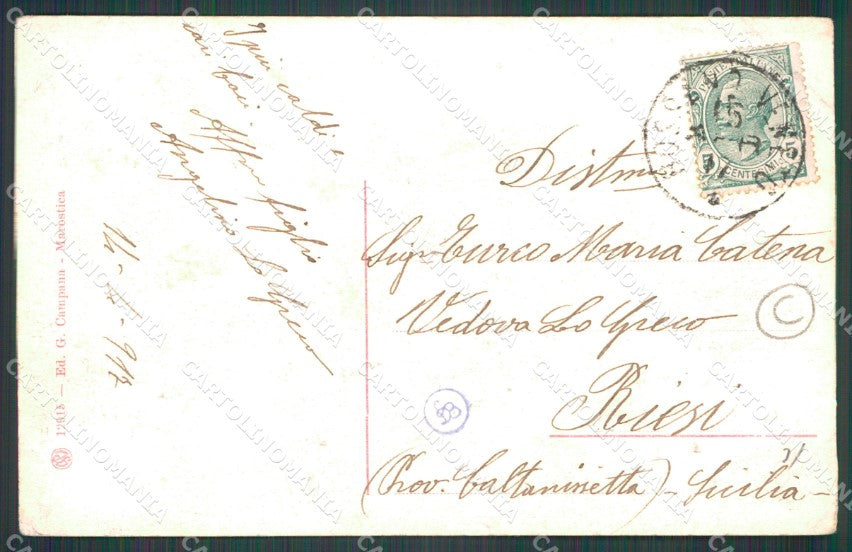 I più caldi e
cari baci
Affmo figlio
Angelino Lo Greco
12415 — Ed. G. Campana - Marostica
Distma
Sigra Turco Maria Catena
Vedova Lo Greco
Riesi
(Prov. Caltanissetta) - Sicilia -
C
CENTESIMI
CARTOLINOMANIA